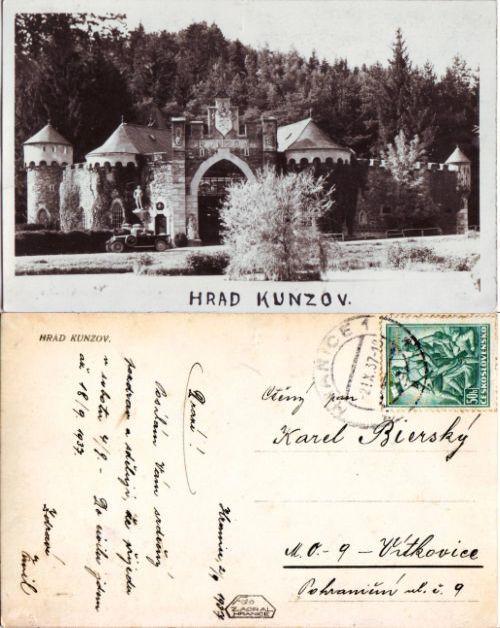 HRAD KUNZOV.
HRAD KUNZOV.
HRANICE 1
21.IX.37-1
50h
ČESKOSLOVENSKO
Hranice 2/9 1937
Drazí!
Posílám Vám srdečný
pozdrav a sděluji, že přijedu
v sobotu 4/9 - Do civilu jdem
až 18/9 1937.
Zdraví
Emil
Ctěný pan
Karel Bierský
M.O.-9-Vítkovice
Pohraniční ul. č. 9
ZAORAL
HRANICE